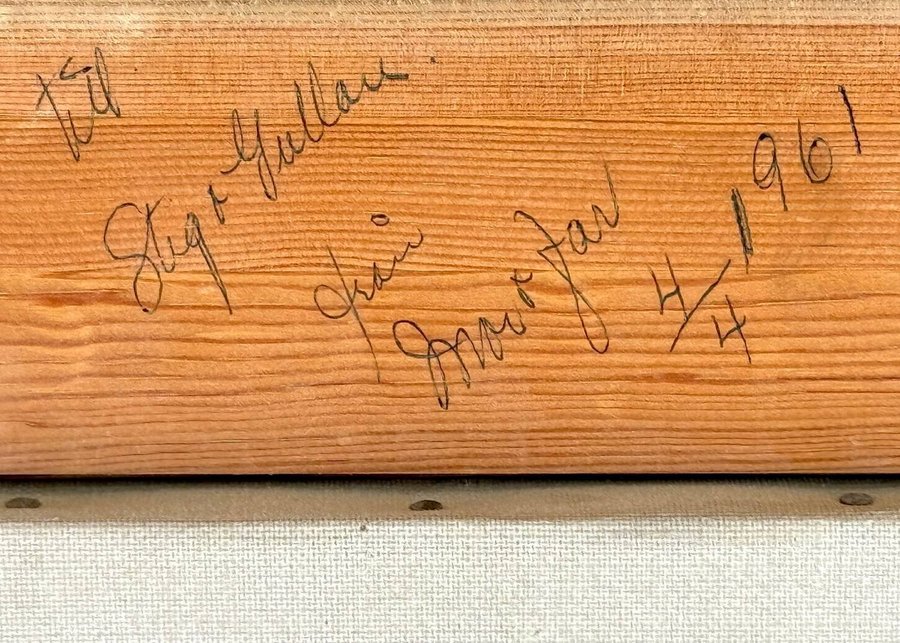 Till
Stig o Gullan.
från
Mor o Far 4/4 1961